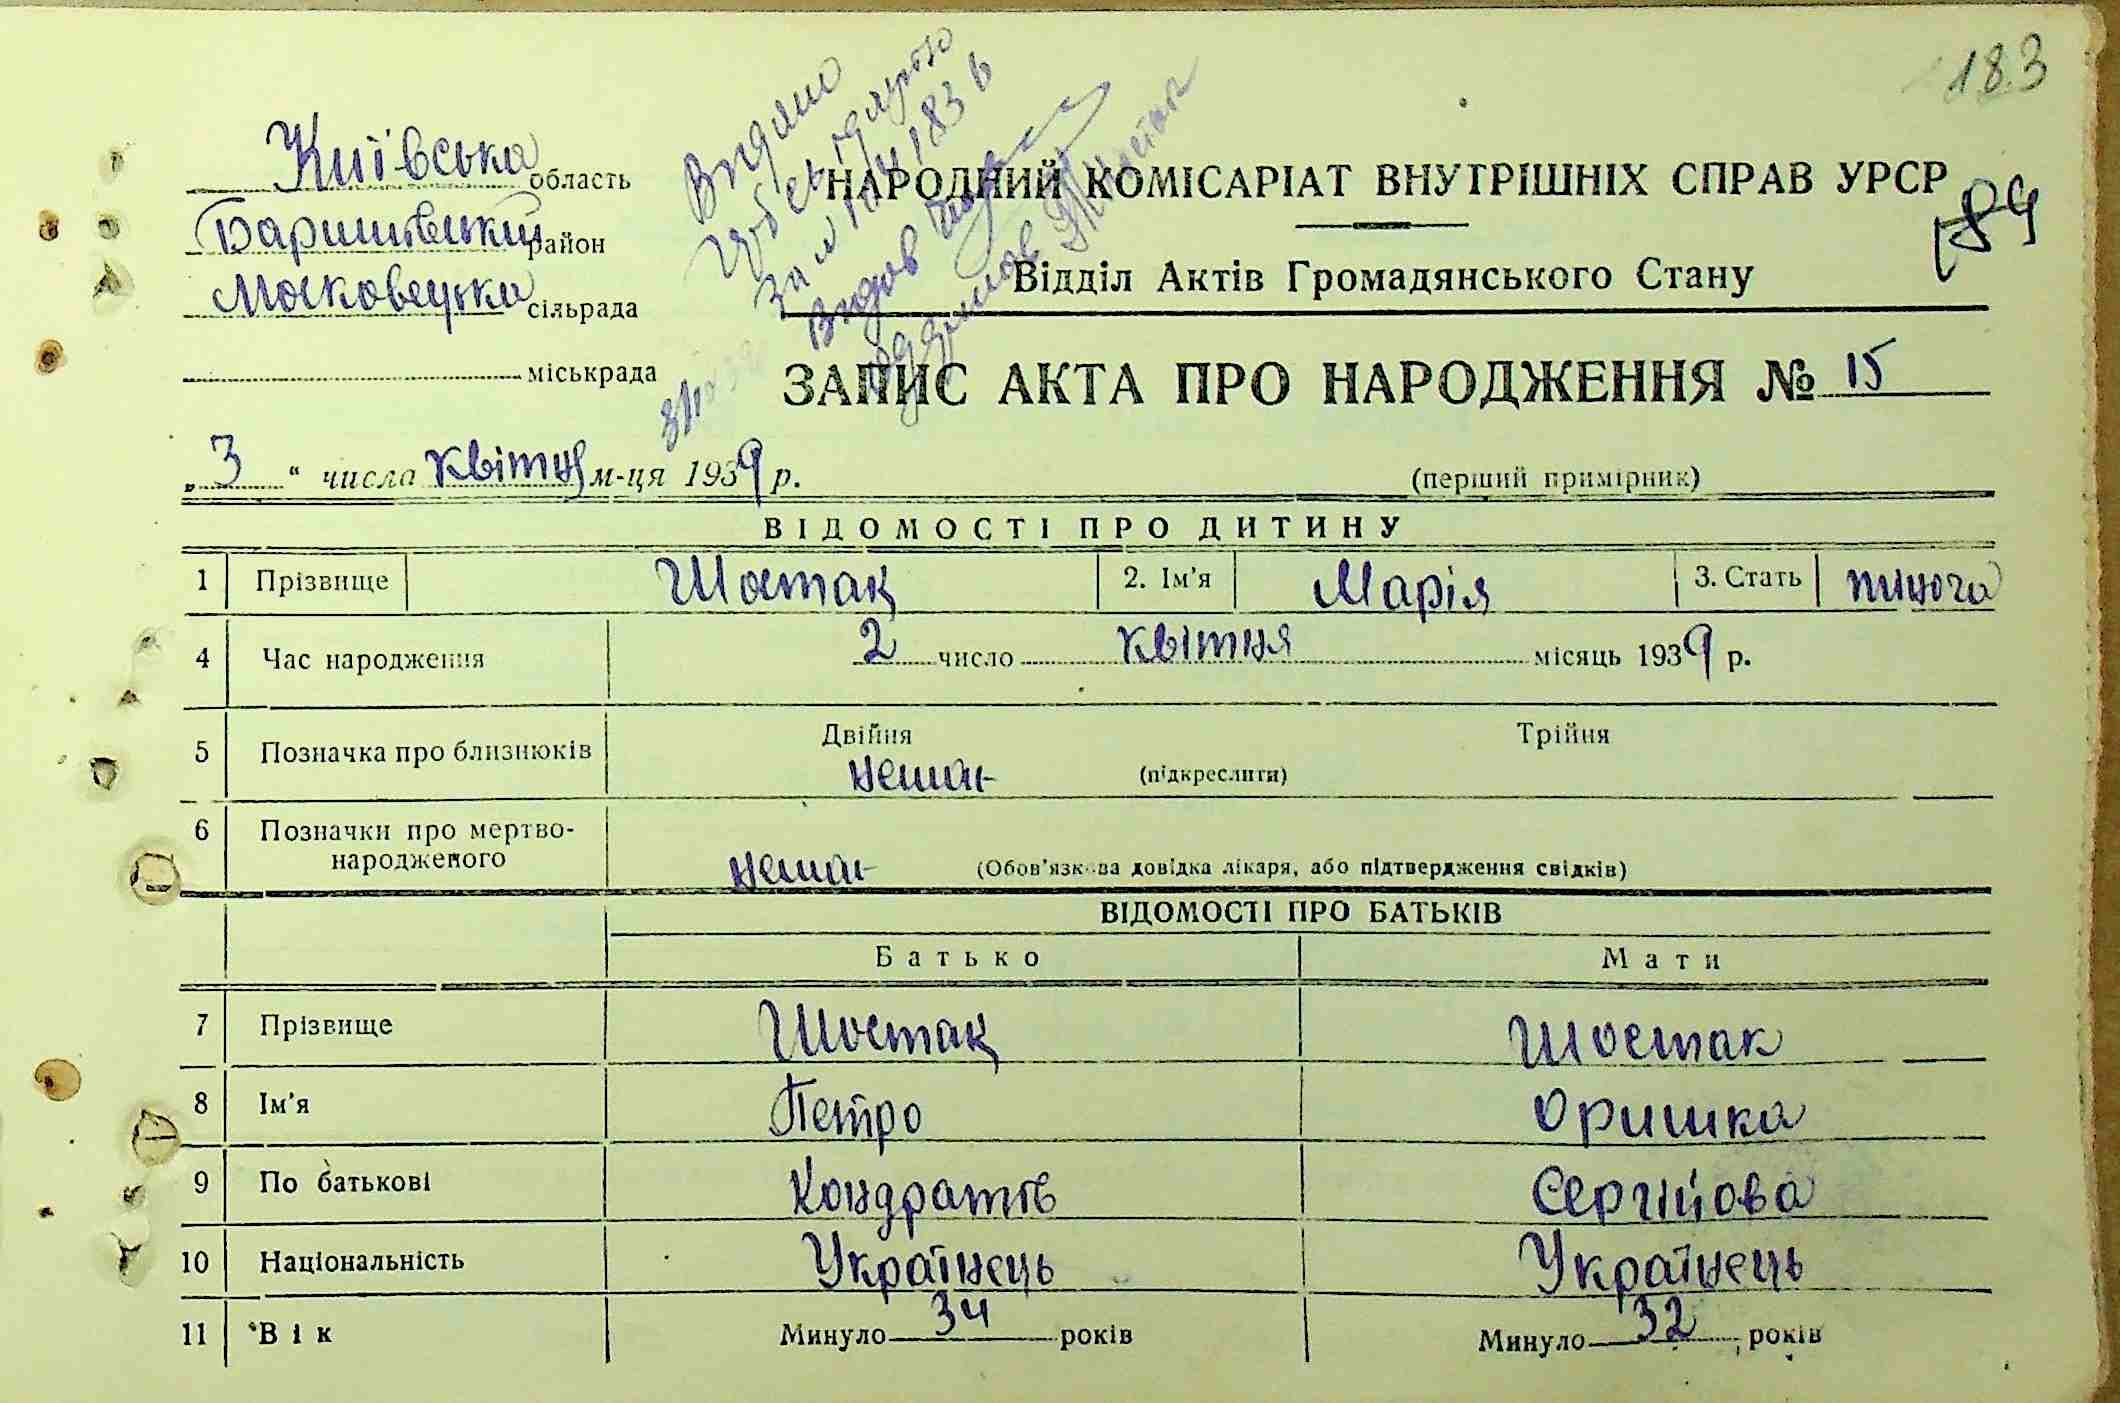 183
Київська область
Баришівський район
Московецька сільрада
міськрада
Видано
183
НАРОДНИЙ КОМІСАРІАТ ВНУТРІШНІХ СПРАВ УРСР
184
Відділ Актів Громадянського Стану
ЗАПИС АКТА ПРО НАРОДЖЕННЯ № 15
„3“ числа квітня м-ця 1939 р.
(перший примірник)
ВІДОМОСТІ ПРО ДИТИНУ
1 Прізвище Шостак 2. Ім'я Марія 3. Стать жіноча
4 Час народження 2 число квітня місяць 1939 р.
5 Позначка про близнюків Двійня Трійня
немає (підкреслити)
6 Позначки про мертво-
народженого немає (Обов'язкова довідка лікаря, або підтвердження свідків)
ВІДОМОСТІ ПРО БАТЬКІВ
Батько Мати
7 Прізвище Шостак Шостак
8 Ім'я Петро Оришка
9 По батькові Кондратів Сергійова
10 Національність Українець Українець
11 Вік Минуло 34 років Минуло 32 років